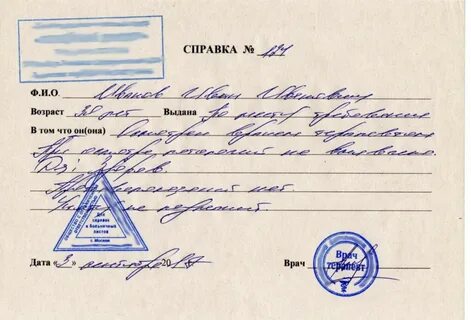 СПРАВКА № 181
Ф.И.О. Иванов Иван Иванович
Возраст 30 лет Выдана По месту требования
В том что он(она) Осмотрен врачом терапевтом
При осмотре патологий не выявлено.
Дз: Здоров.
Противопоказаний нет.
Для
справок
и больничных
листов
г. Москва
Дата «3» сентября 2017
Врач
Врач
терапевт